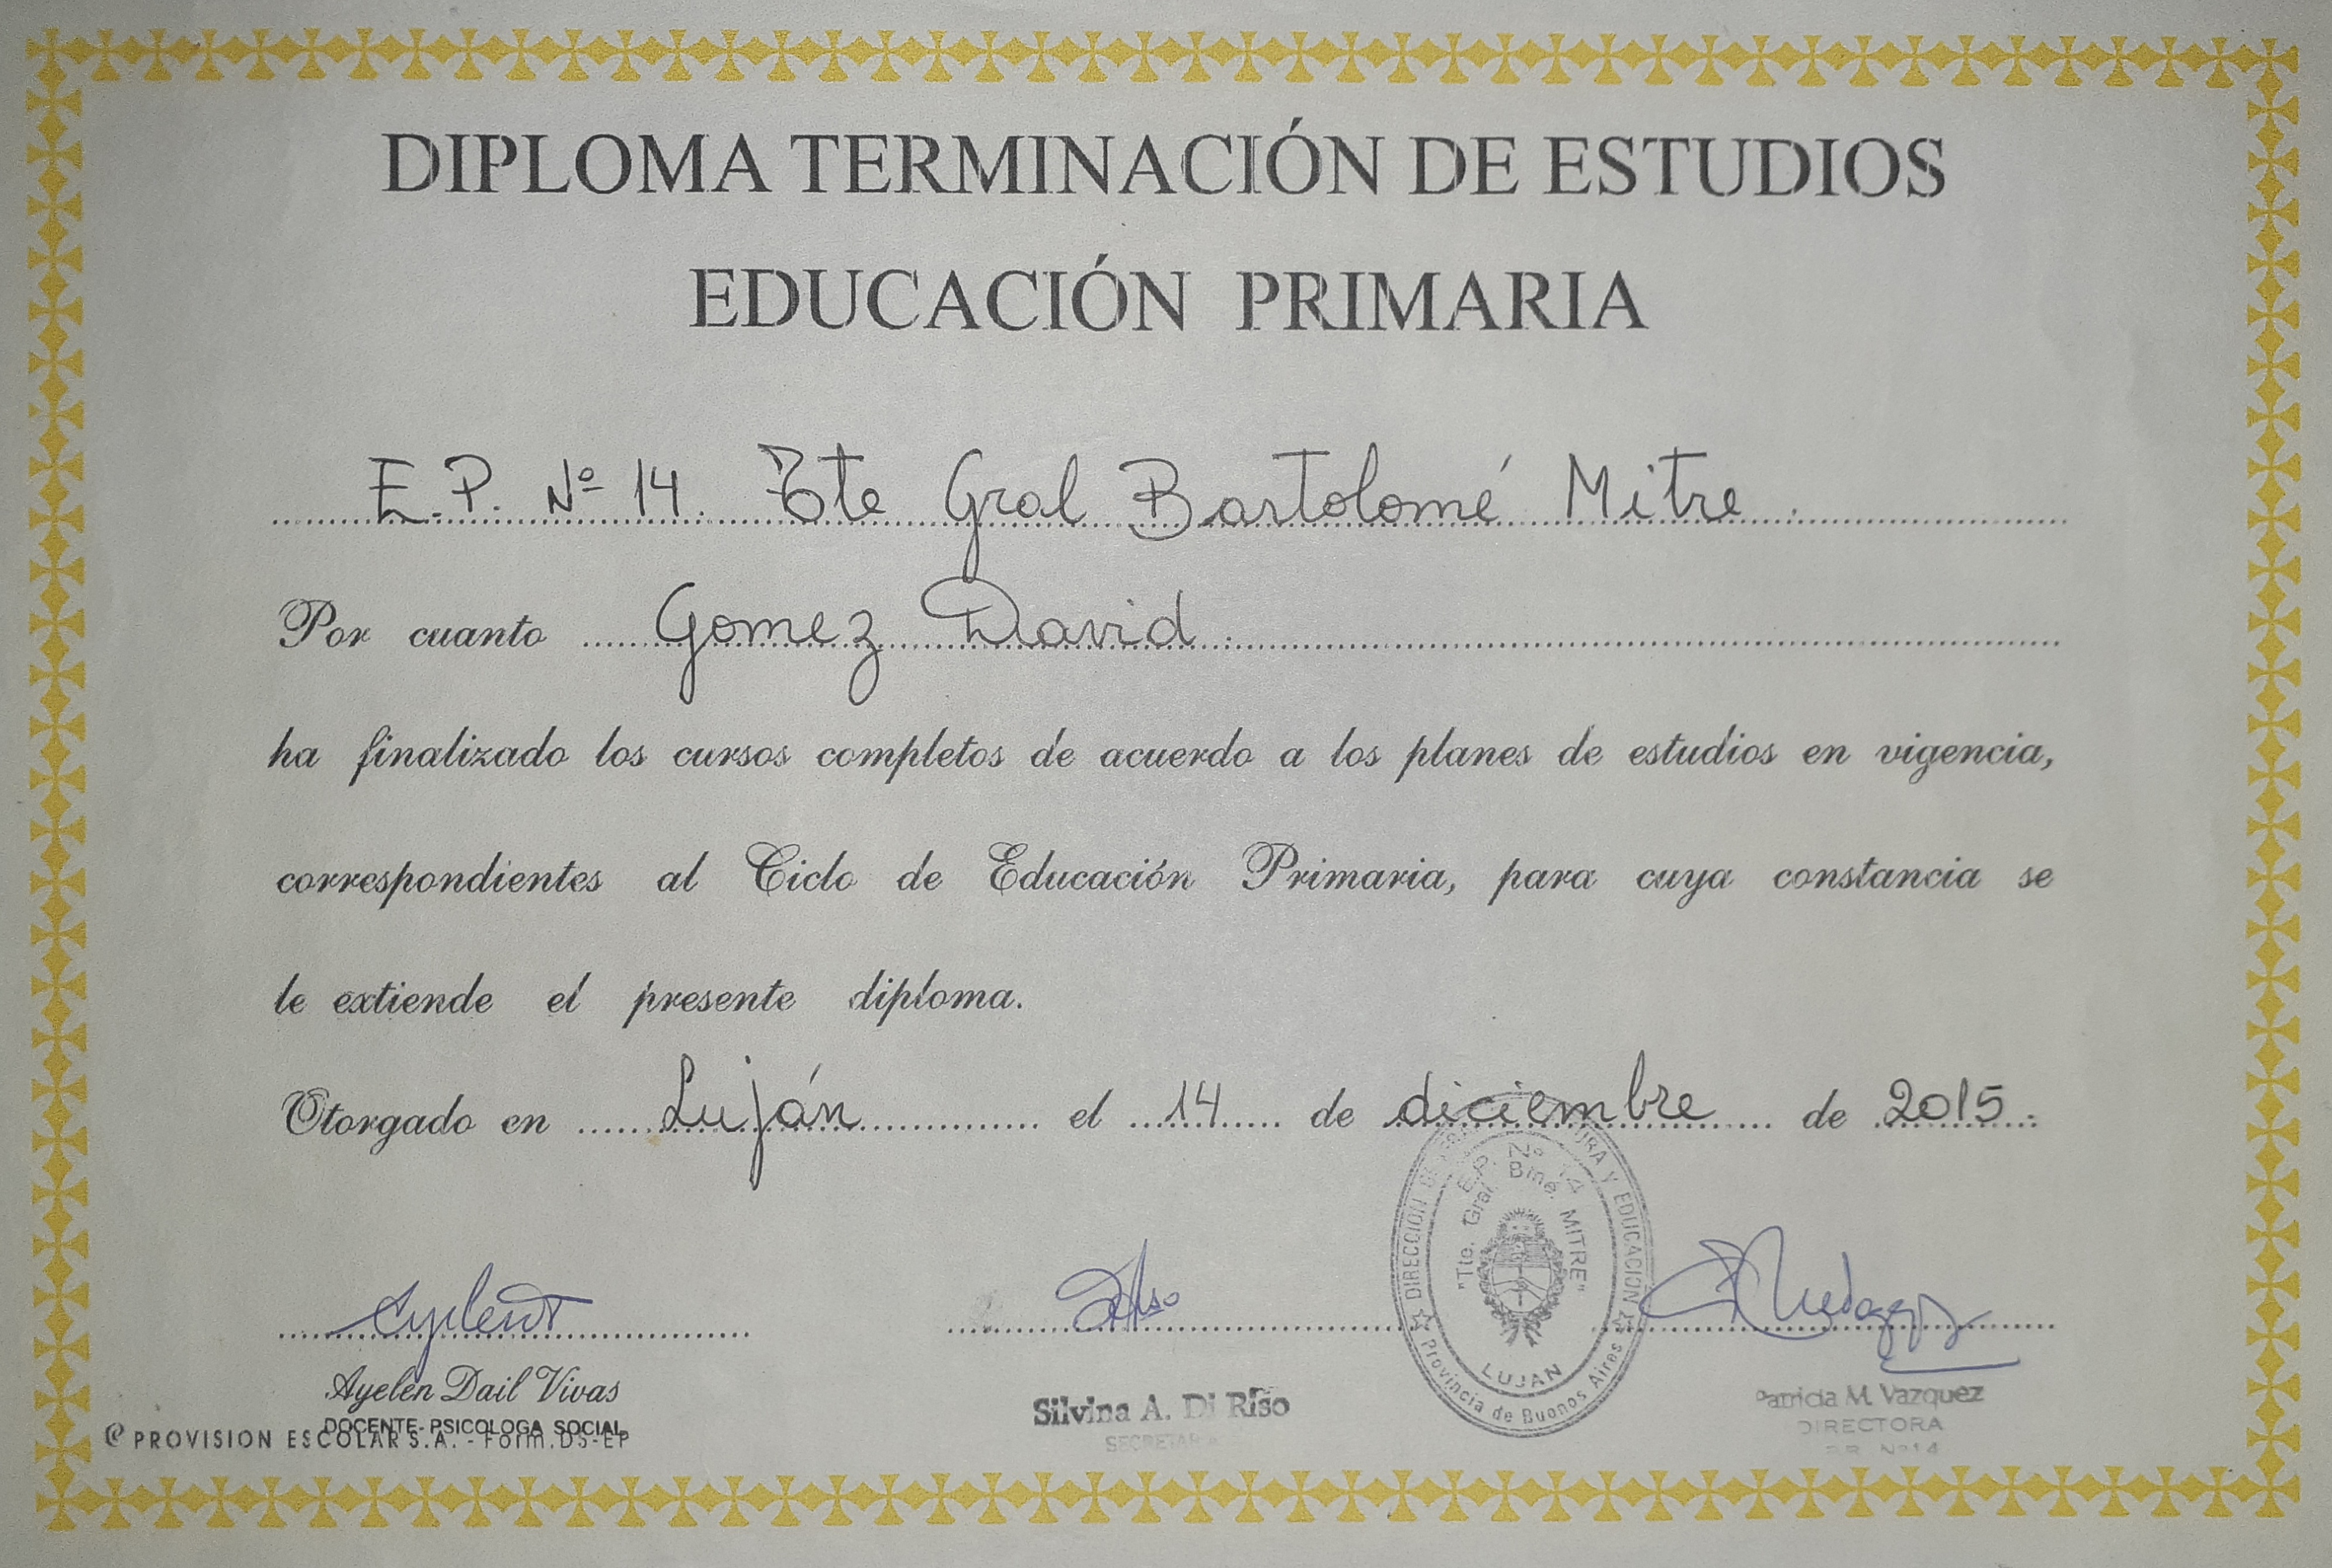 DIPLOMA TERMINACIÓN DE ESTUDIOS
EDUCACIÓN PRIMARIA
E.P. Nº 14. Tte Gral Bartolomé Mitre.
Por cuanto Gomez David.
ha finalizado los cursos completos de acuerdo a los planes de estudios en vigencia,
correspondientes al Ciclo de Educación Primaria, para cuya constancia se
le extiende el presente diploma.
Otorgado en Luján el 14 de diciembre de 2015.
DIRECCIÓN URA Y EDUCACIÓN
E.P. Nº 14
"Tte. Gral. Bmé. MITRE"
LUJAN
Provincia de Buenos Aires
Ayelén Dail Vivas
DOCENTE-PSICOLOGA SOCIAL
Silvina A. Di Riso
SECRETARIA
Patricia M. Vazquez
DIRECTORA
Nº14
PROVISION ESCOLAR S.A. - Form. DS-EP